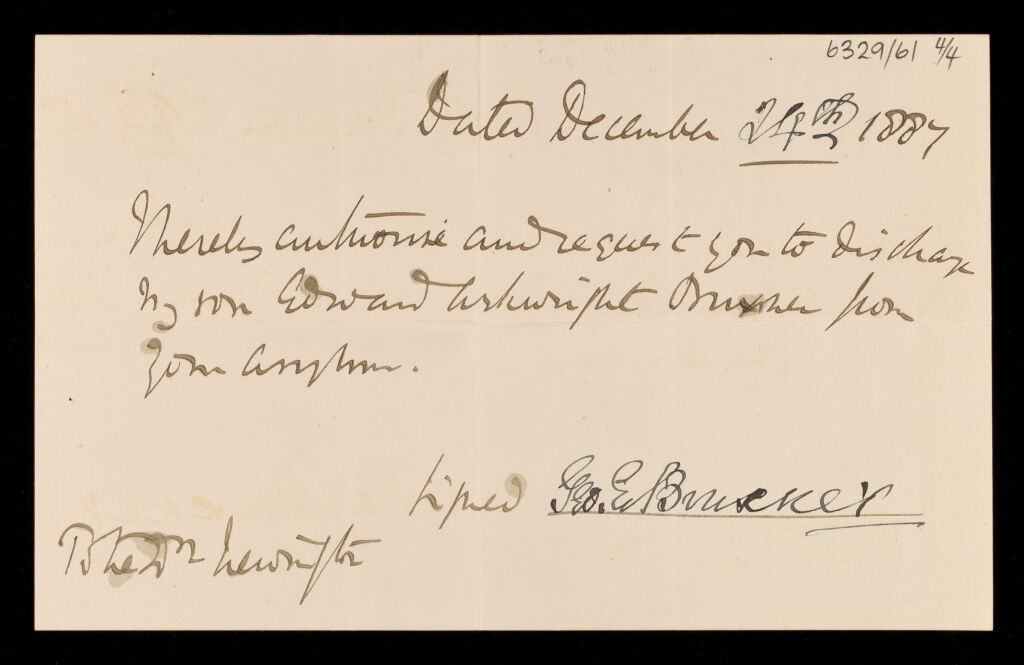 6329/61 4/4
Dated December 24th 1887
I hereby authorise and request you to discharge
my son Edward Arkwright Bruxner from
your asylum.
Signed Geo. E. Bruxner
To the Drs Newington